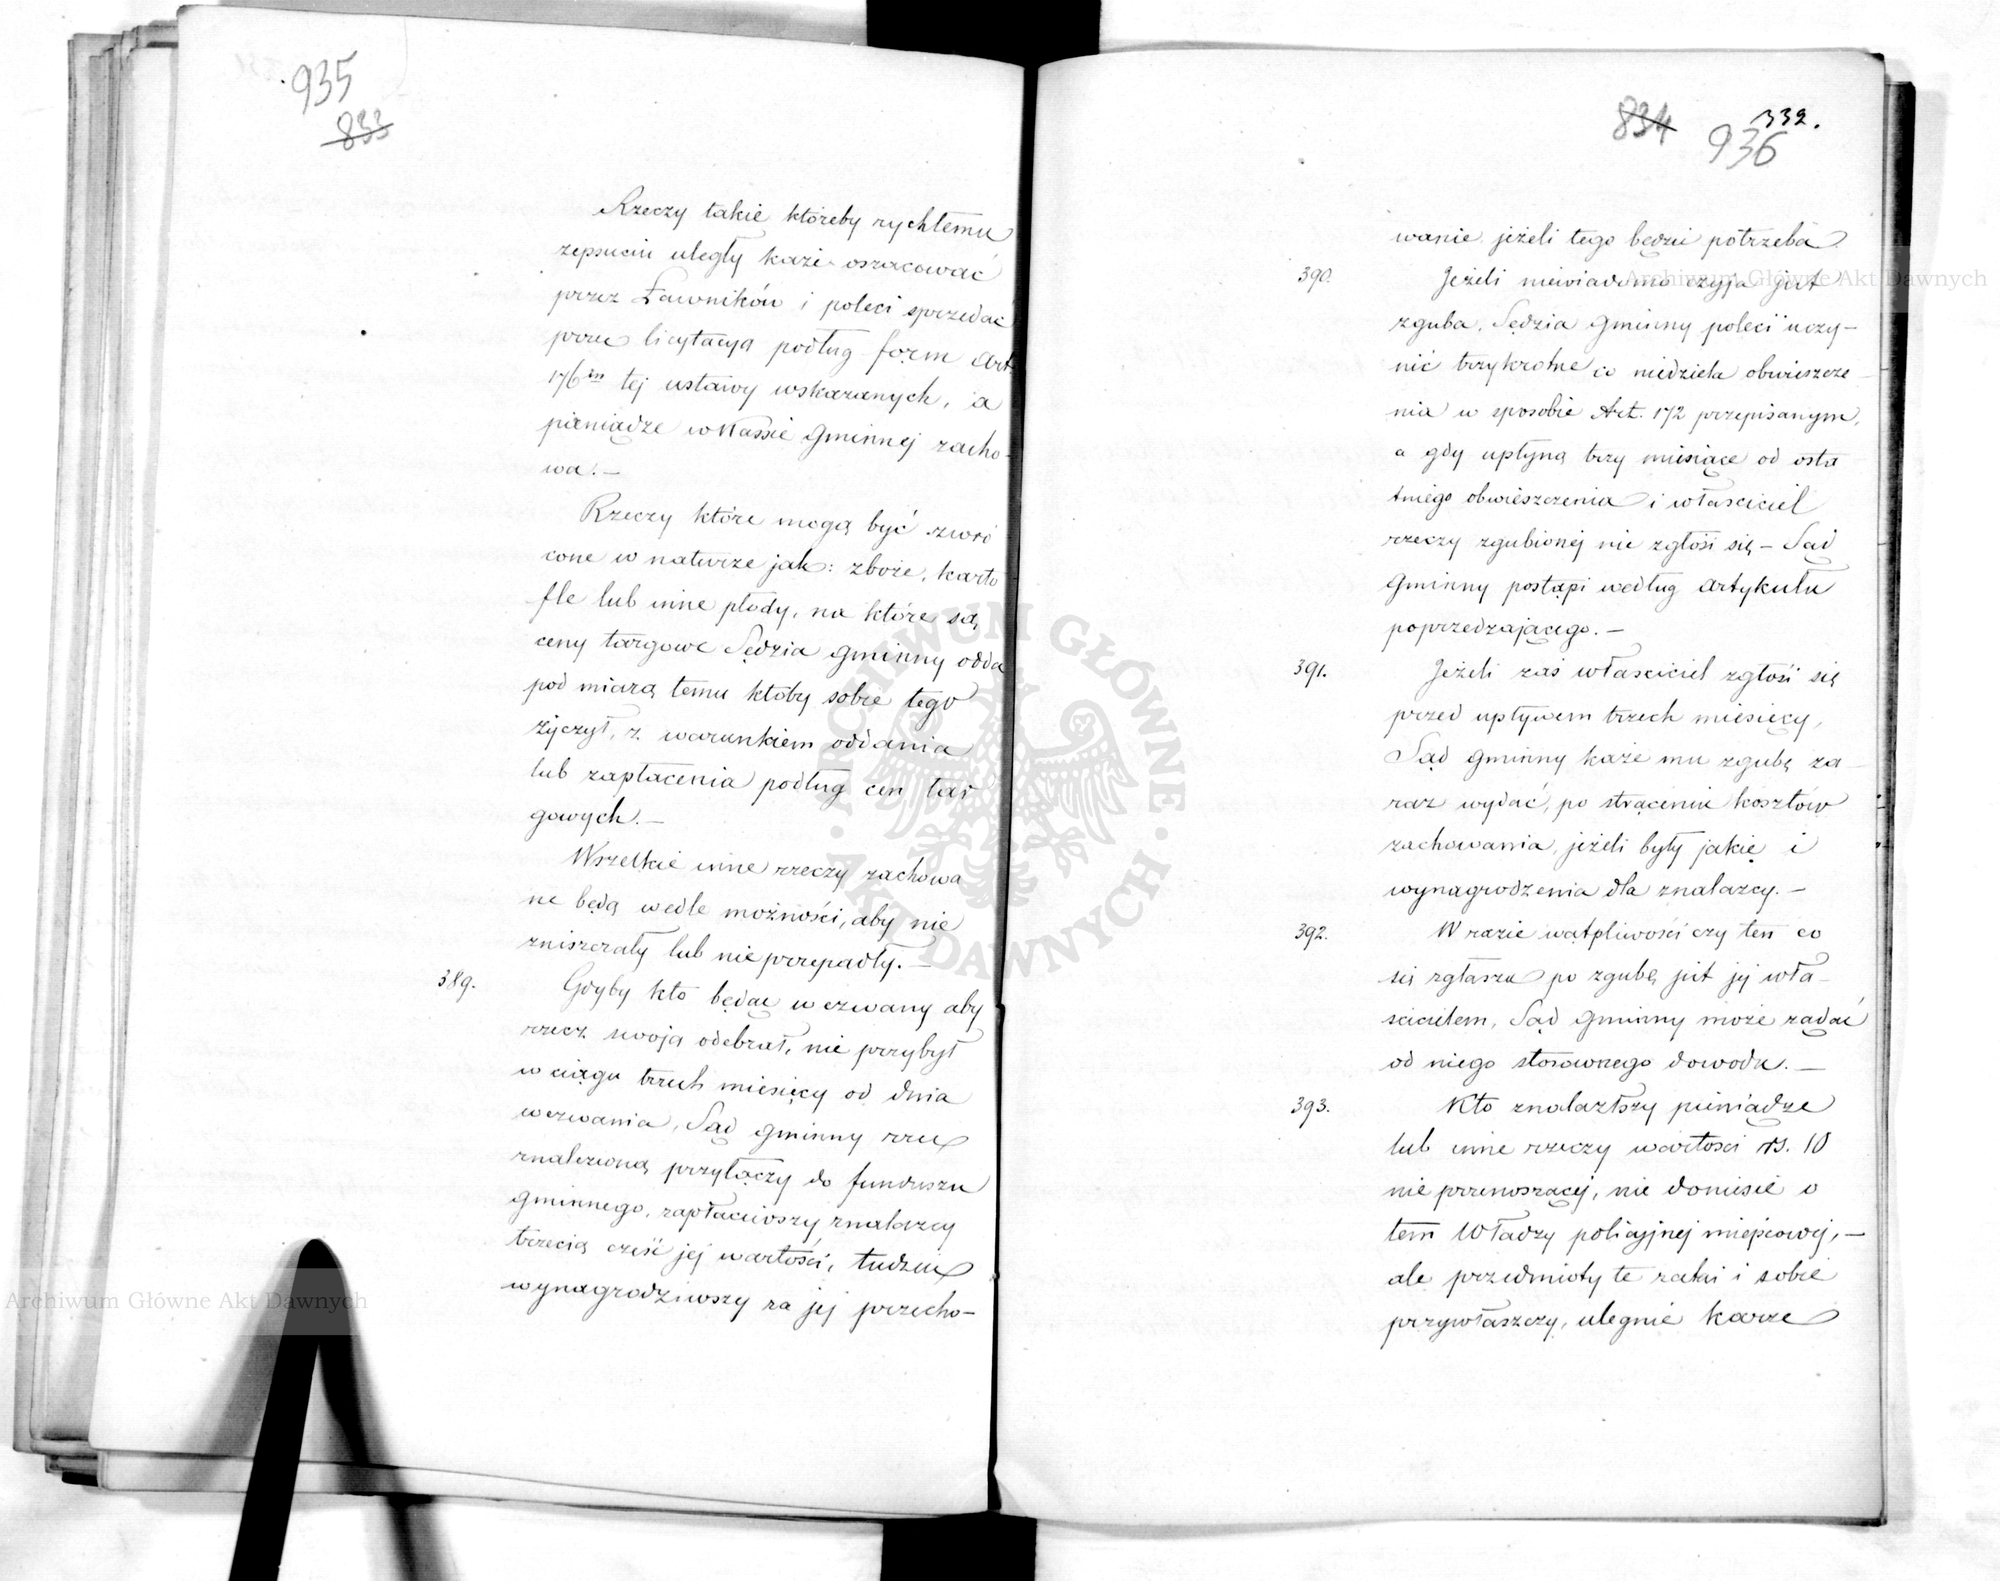 935
833
Rzeczy takie któreby rychłemu
zepsuciu uległy każe oszacować
przez Ławników i poleci sprzedać
przez licytacyą podług form Art.
176ᵗᵉⁱ tej ustawy wskazanych, a
pieniądze w Kassie gminnej zacho-
wa. —
Rzeczy które mogą być zwró
cone w naturze jak: zboże, karto
fle lub inne płody, na które są
ceny targowe Sędzia gminny odda
pod miarą temu ktoby sobie tego
życzył, z warunkiem oddania
lub zapłacenia podług cen tar
gowych. —
Wszelkie inne rzeczy zachowa
ne będą wedle możności, aby nie
zniszczały lub nie przepadły. —
389. Gdyby kto będąc wezwany aby
rzecz swoją odebrał, nie przybył
w ciągu trzech miesięcy od dnia
wezwania, Sąd gminny rzecz
znalezioną przyłączy do funduszu
gminnego, zapłaciwszy znalazcy
trzecią cześć jej wartości, tudzież
wynagrodziwszy za jej przecho-
834 332.
936
wanie jeżeli tego będzie potrzeba.
390. Jeżeli niewiadomo czyja jest
zguba, Sędzia gminny poleci uczy-
nić trzykrotne co niedziela obwieszcze
nia w sposobie Art. 172 przepisanym,
a gdy upłyną trzy miesiące od osta
tniego obwieszczenia i właściciel
rzeczy zgubionej nie zgłosi się — Sąd
gminny postąpi według artykułu
poprzedzającego. —
391. Jeżeli zaś właściciel zgłosi się
przed upływem trzech miesięcy,
Sąd gminny każe mu zgubę za
raz wydać, po strąceniu kosztów
zachowania, jeżeli były jakie i
wynagrodzenia dla znalazcy. —
392. W razie wątpliwości czy ten co
się zgłasza po zgubę jest jej wła-
ścicielem, Sąd gminny może żądać
od niego stosownego dowodu. —
393. Kto znalazłszy pieniądze
lub inne rzeczy wartości rs. 10
nie przenoszącej, nie doniesie o
tem Władzy policyjnej miejscowej, —
ale przedmioty te zatai i sobie
przywłaszczy, ulegnie karze
Archiwum Główne Akt Dawnych
Archiwum Główne Akt Dawnych
ARCHIWUM GŁÓWNE · AKT DAWNYCH ·